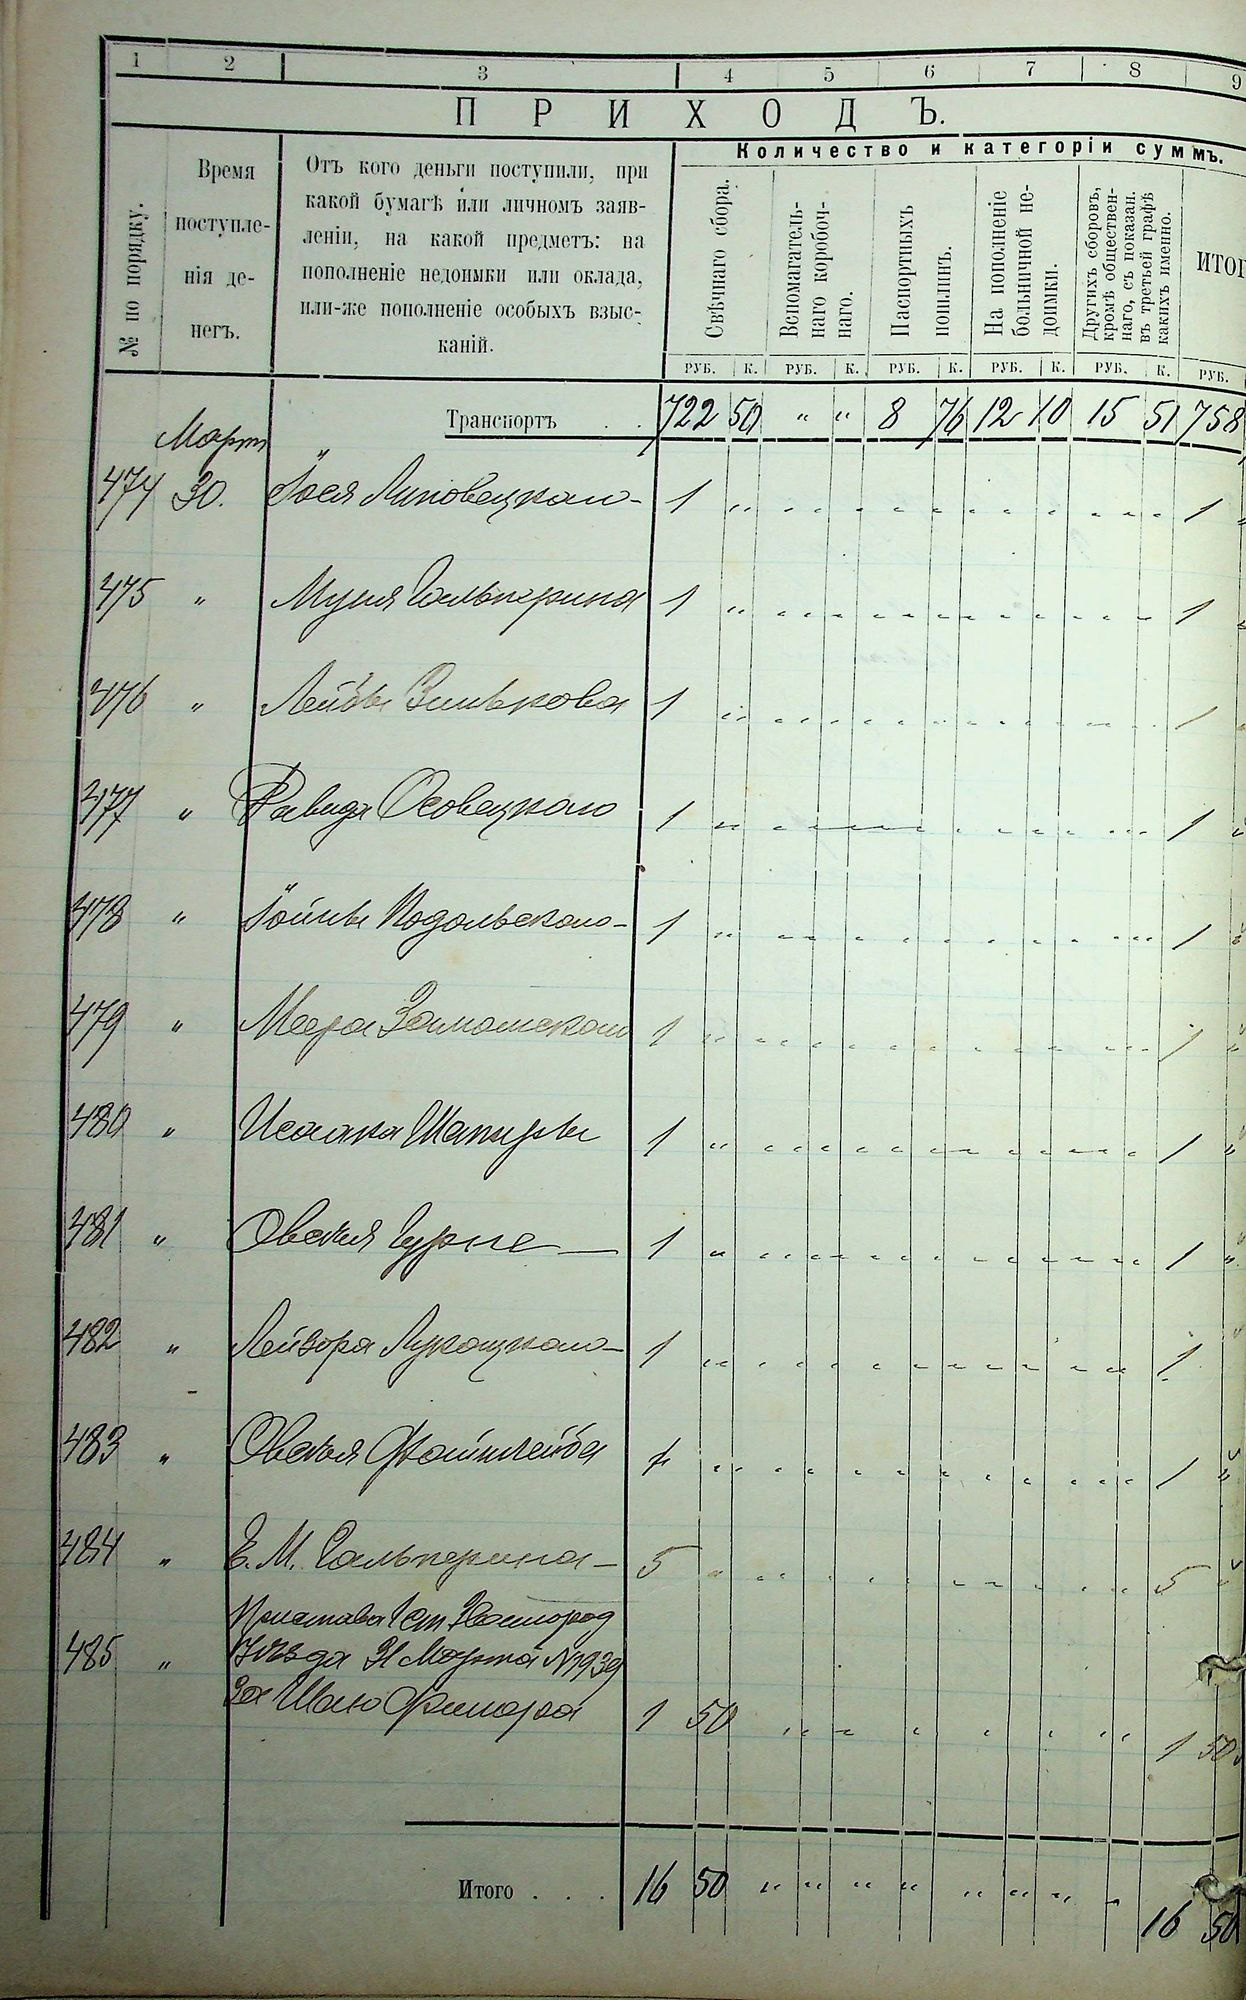 1 2 3 4 5 6 7 8 9
ПРИХОДЪ.
Количество и категоріи суммъ.
№ по порядку.
Время
поступле-
нія де-
негъ.
Отъ кого деньги поступили, при
какой бумагѣ или личномъ заяв-
леніи, на какой предметъ: на
пополненіе недоимки или оклада,
или-же пополненіе особыхъ взыс-
каній.
Свѣчнаго сбора.
Вспомагатель-
наго коробоч-
наго.
Паспортныхъ
пошлинъ.
На пополненіе
больничной не-
доимки.
Другихъ сборовъ,
кромѣ обществен-
наго, съ показан.
въ третьей графѣ
какихъ именно.
ИТОГ
РУБ. К. РУБ. К. РУБ. К. РУБ. К. РУБ. К. РУБ.
Транспортъ . . 722 50 " " 8 76 12 10 15 51 758
Мартъ
474 30. Іося Липовецкаго 1 " 1
475 " Муня Гальперина 1 " 1
476 " Лейбы Зинькова 1 " 1
477 " Давида Осовецкаго 1 " 1
478 " Іойны Подольскаго 1 " 1
479 " Меера Замошскаго 1 " 1
480 " Исаака Шапиры 1 " 1
481 " Овсея Гурпе 1 " 1
482 " Лейзора Лукацкаго 1 " 1
483 " Овсея Файнлейба 1 " 1
484 " Е. М. Гальперина 5 " 5
Пристава 1 ст
485 " Уѣзда 21 Марта № 1939
за Шаю 1 50 1 50
Итого . . . 16 50 " " " " " " " 16 50